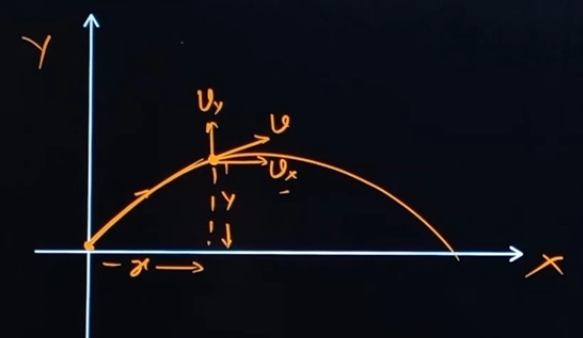 Y
v_y
v
v_x
y
x
X